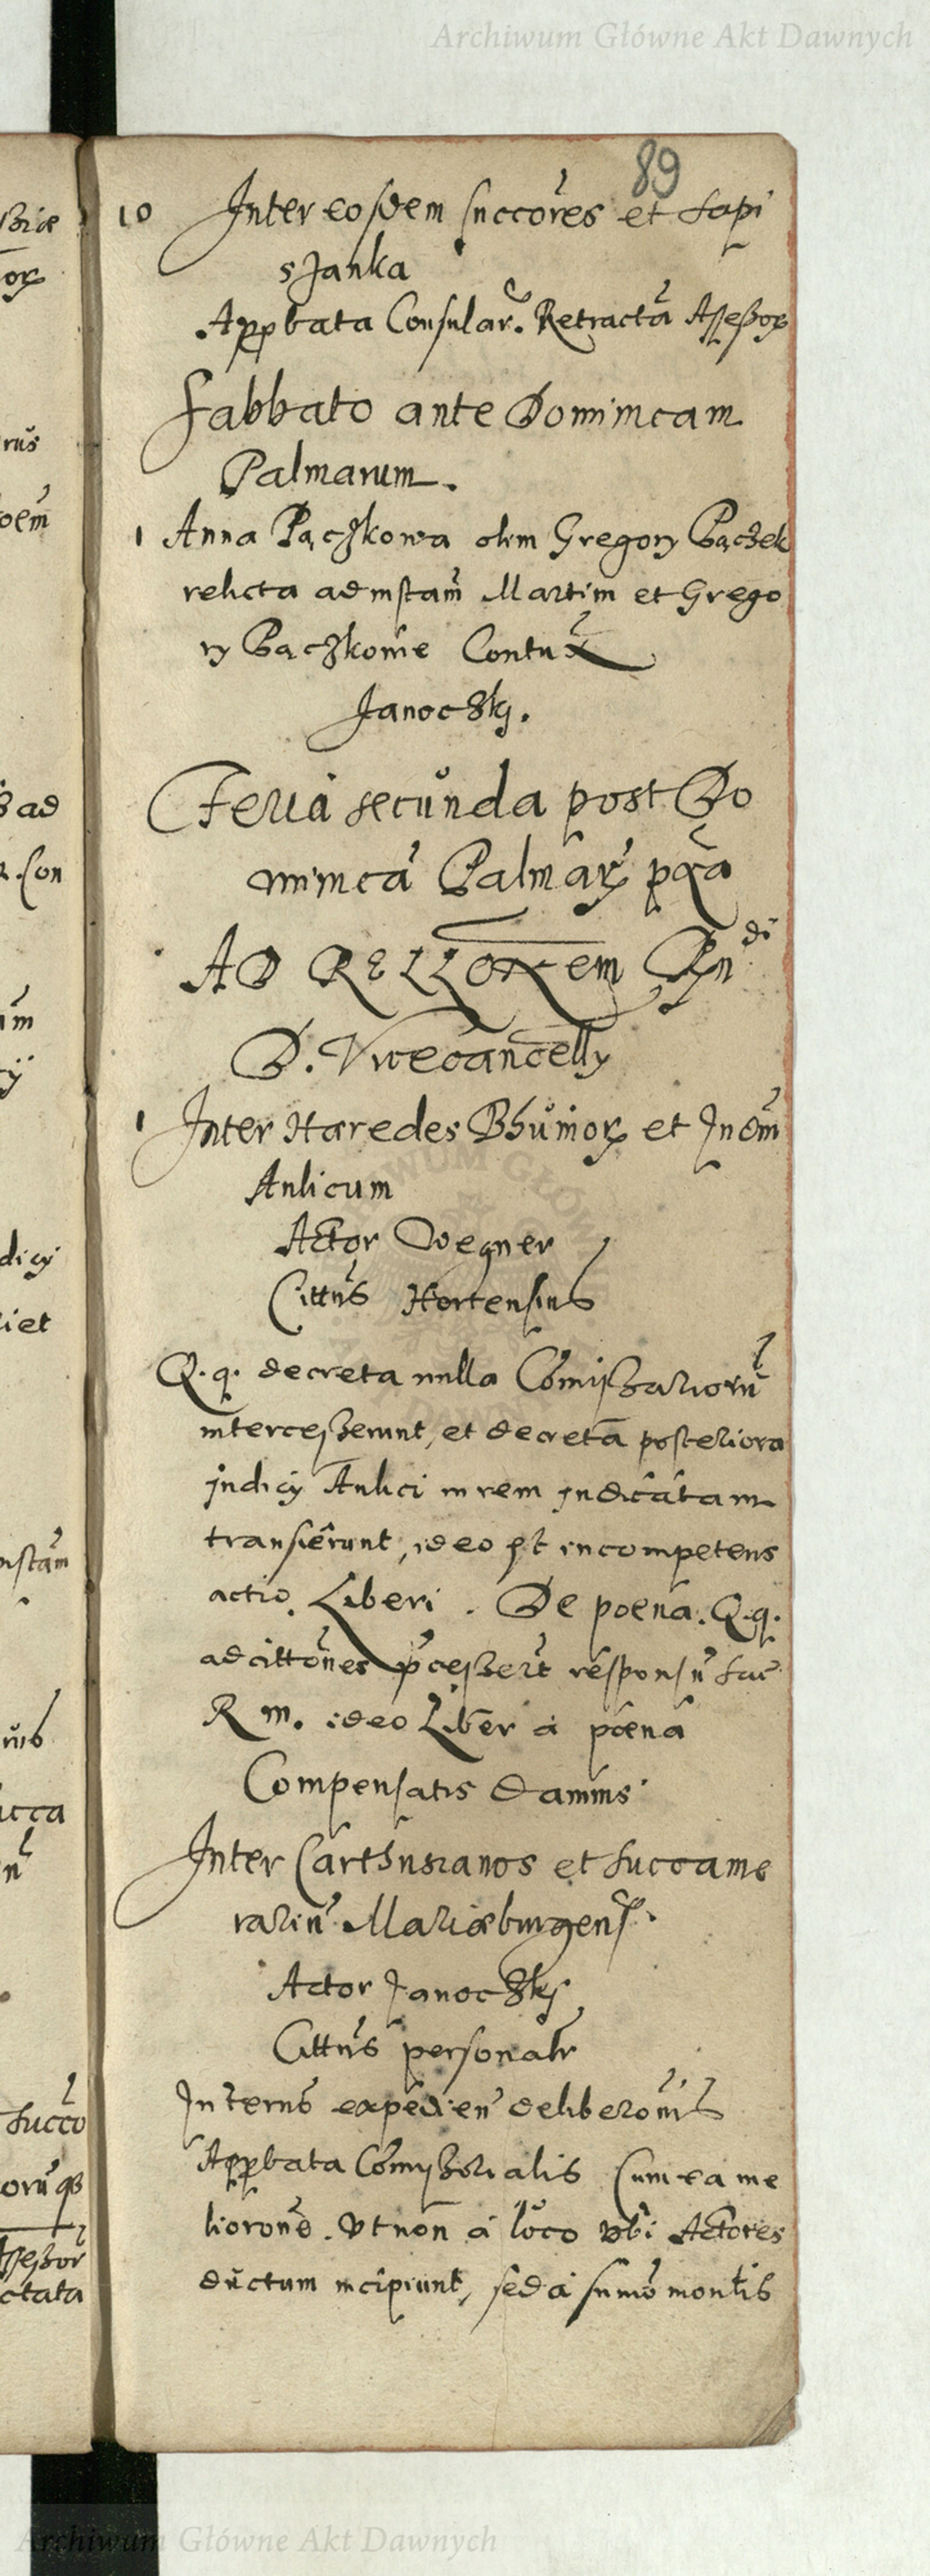 Archiwum Główne Akt Dawnych
89
10 Inter eosdem succōres et Lapi
sJanka
Appbata Consular. Retractā Assessor
Sabbato ante Dominicam
Palmarum.
1 Anna Pączkowa olim Gregory Pączek
relicta ad instam Martini et Grego
ry Pączkowie Contu
Janoczky.
Feria secunda post Do
minicā Palmar pxa
AD RELLONEM Rndi
D. Vicecancelly
1 Inter Haeredes Bhuinor et Indm
Aulicum
Actor Wegner
Cittus Hortensius
Q.q. decreta nulla Comissariorū
intercesserunt, et decreta posteriora
judicy Aulici in rem judicatam
transierunt, ideo est incompetens
actio. Liberi. De poena. Q.q.
ad cittones pcessert responsū Sac
R M. ideo Liber à poena
Compensatis damnis
Inter Carthusianos et Succame
rariū Mariaeburgens.
Actor Janoczky
Cittus personalr
In terns expedien deliberonis
Appbata Comissorialis Cum ea me
liorone. Vt non à loco vbi Actores
ductum incipiunt, sed à sumo montis
Archiwum Główne Akt Dawnych